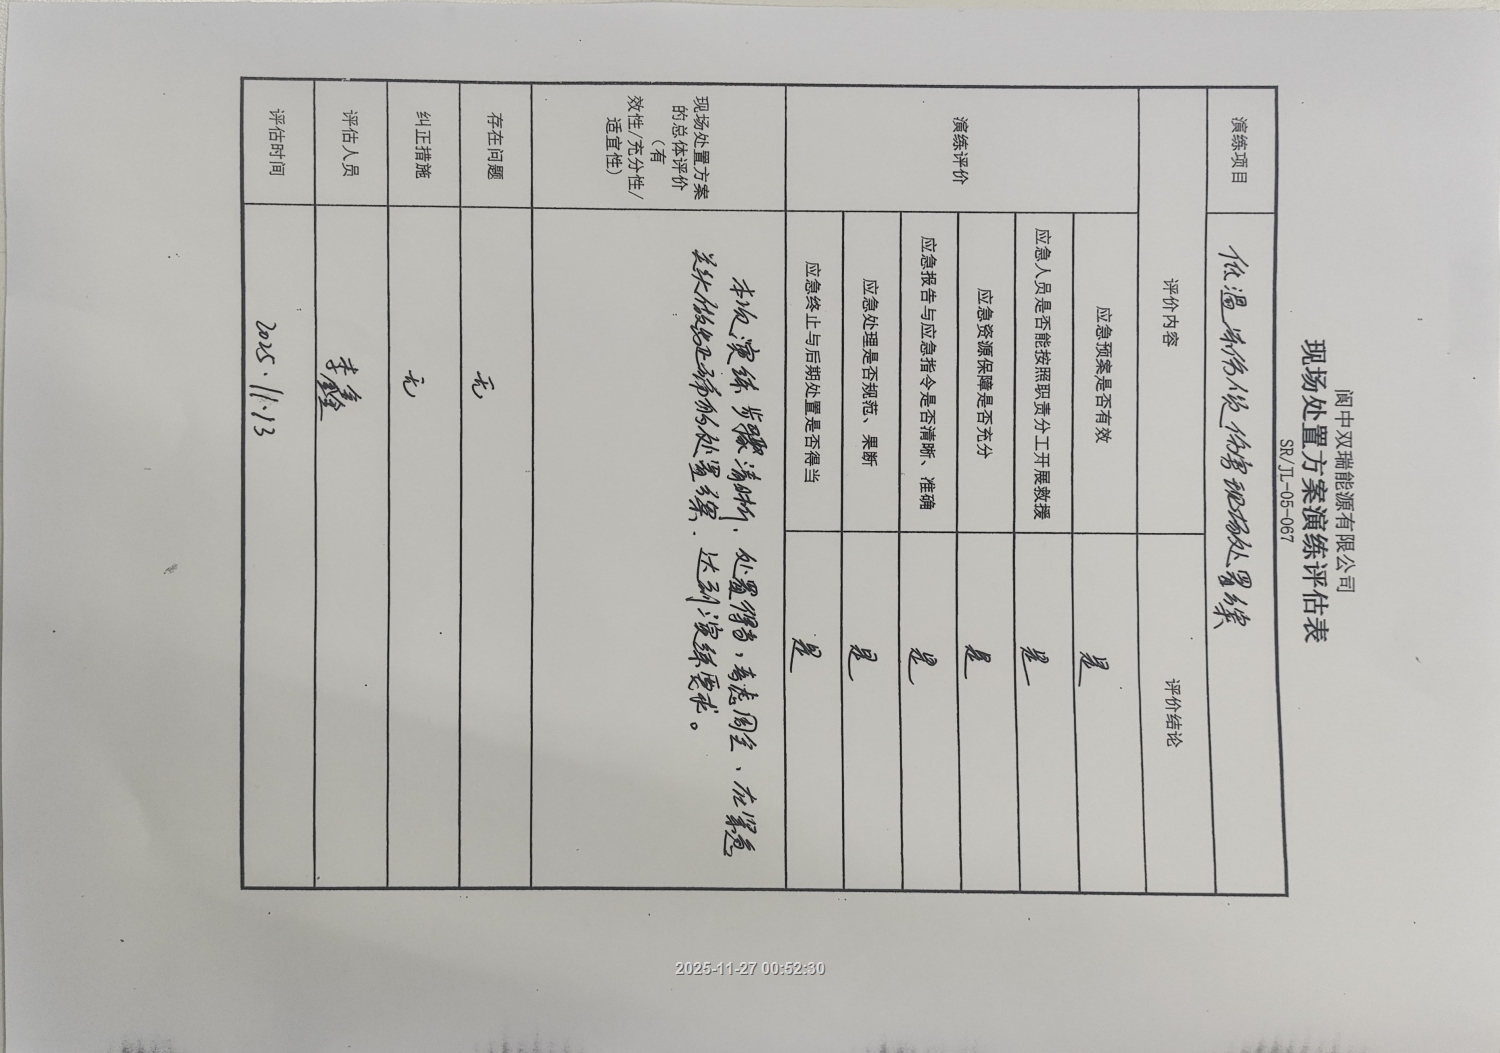 阆中双瑞能源有限公司
现场处置方案演练评估表
SR/JL-05-067
演练项目
低温冻伤人员伤害现场处置方案
评价内容
评价结论
演练评价
应急预案是否有效
是
应急人员是否能按照职责分工开展救援
是
应急资源保障是否充分
是
应急报告与应急指令是否清晰、准确
是
应急处理是否规范、果断
是
应急终止与后期处置是否得当
是
现场处置方案
的总体评价
(有
效性/充分性/
适宜性)
本次演练步骤清晰、处置得当,考虑周全、在紧急
处置方案、达到演练要求。
存在问题
无
纠正措施
无
评估人员
李鑫
评估时间
2025.11.13
2025-11-27 00:52:30